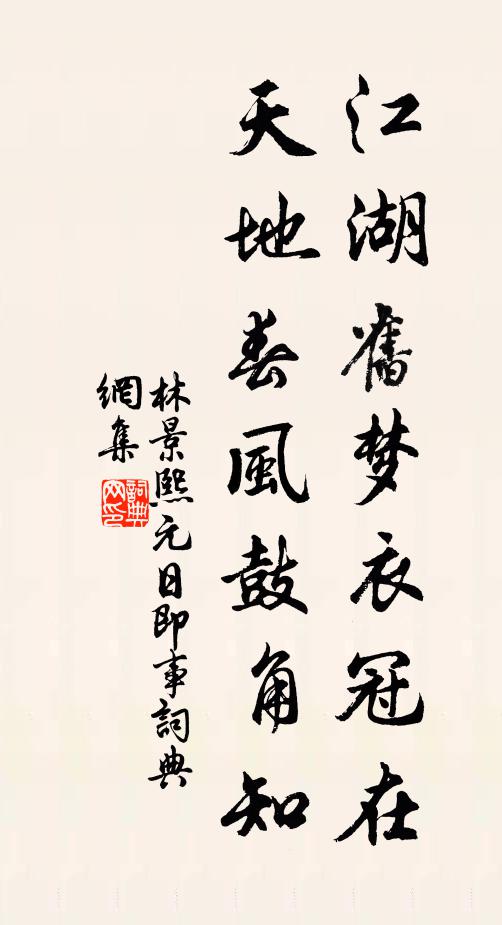 江湖舊梦衣冠在
天地春風鼓角知
林景熙元日即事詞典
網集
詞典網印